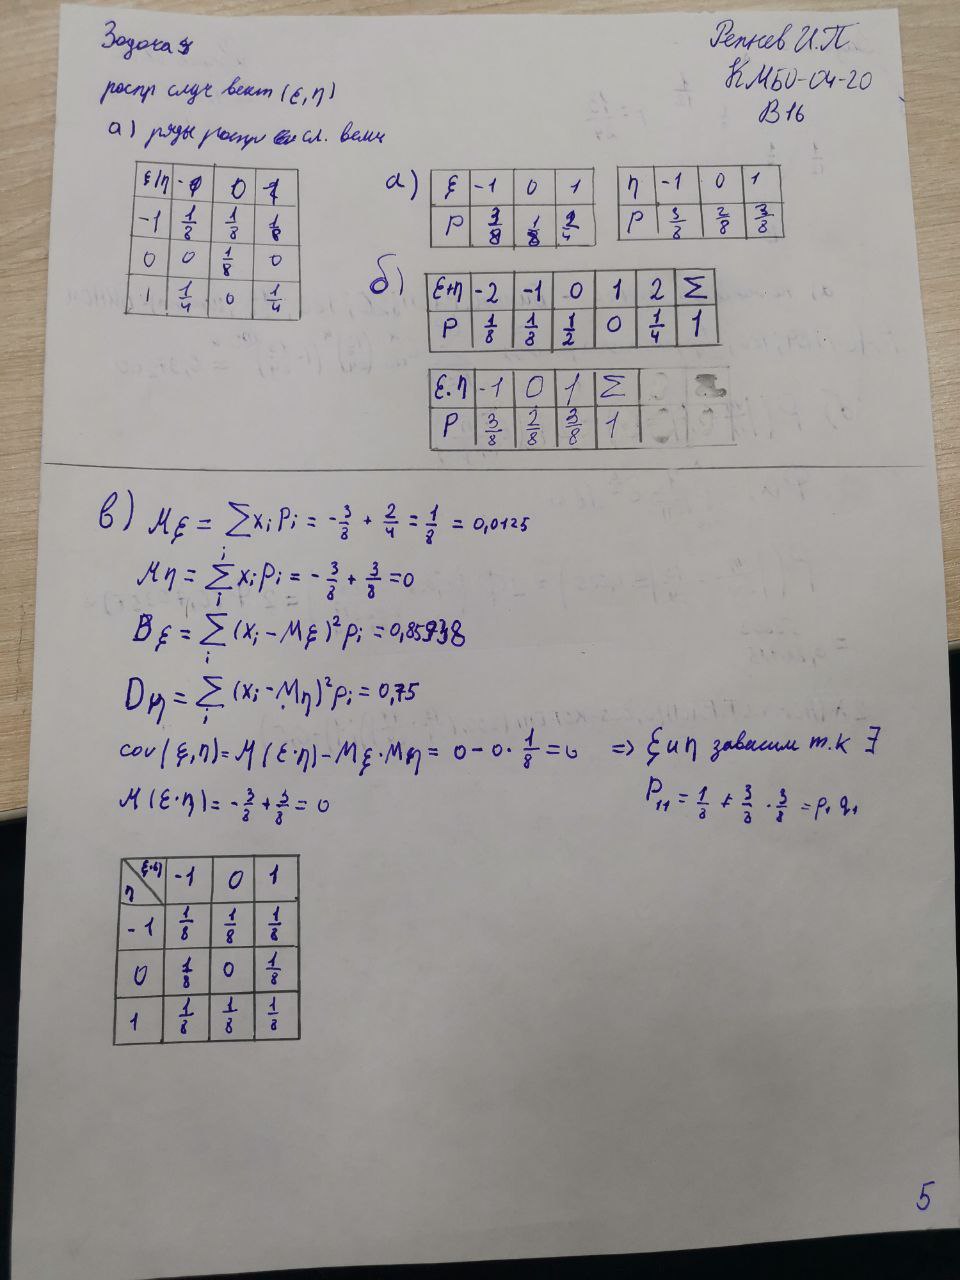 Задача 8
Репнев И.П.
КМБО-04-20
В16
распр случ вект (ξ, η)
а) ряды распр сл. велич
ξ/η -1 0 1
-1 1/8 1/8 1/8
0 0 1/8 0
1 1/4 0 1/4
а) ξ -1 0 1
P 3/8 1/8 2/4
η -1 0 1
P 3/8 2/8 3/8
б) ξ+η -2 -1 0 1 2 Σ
P 1/8 1/8 1/2 0 1/4 1
ξ·η -1 0 1 Σ
P 3/8 2/8 3/8 1
в) Mξ = Σ xi Pi = -3/8 + 2/4 = 1/8 = 0,0125
Mη = Σ xi pi = -3/8 + 3/8 = 0
Bξ = Σ (xi - Mξ)² pi = 0,85938
Dη = Σ (xi - Mη)² pi = 0,75
cov(ξ, η) = M(ξ·η) - Mξ·Mη = 0 - 0·1/8 = 0 => ξ и η зависим т.к ∃
M(ξ·η) = -3/8 + 3/8 = 0
P11 = 1/8 ≠ 3/8 · 3/8 = p1 q1
η ξ·η -1 0 1
-1 1/8 1/8 1/8
0 1/8 0 1/8
1 1/8 1/8 1/8
5